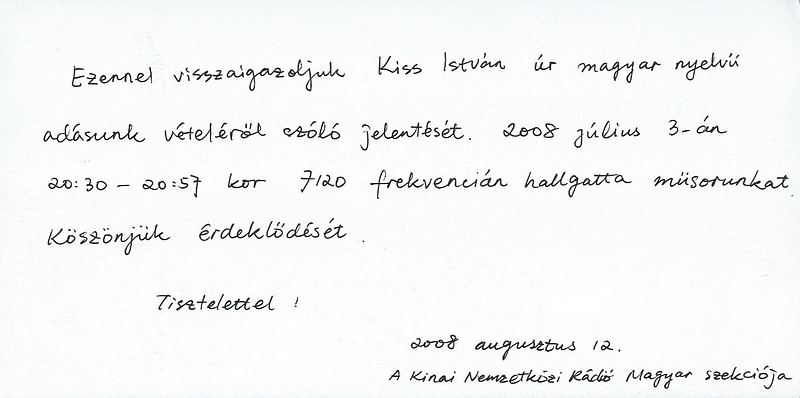 Ezennel visszaigazoljuk Kiss István úr magyar nyelvű
adásunk vételéről szóló jelentését. 2008 július 3-án
20:30 – 20:57 kor 7120 frekvencián hallgatta műsorunkat.
Köszönjük érdeklődését.
Tisztelettel!
2008 augusztus 12.
A Kinai Nemzetközi Rádió Magyar szekciója